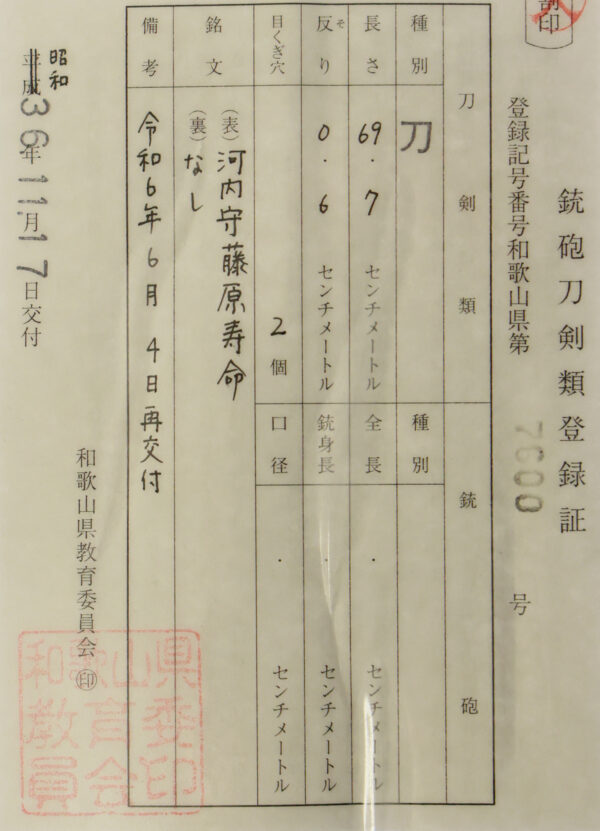 割印
銃砲刀剣類登録証
登録記号番号和歌山県第 号
刀剣類
銃砲
種別
刀
種別
長さ
69.7センチメートル
全長
・センチメートル
反り
そ
0.6センチメートル
銃身長
・センチメートル
目くぎ穴
2個
口径
・センチメートル
銘文
(表)河内守藤原寿命
(裏)なし
備考
令和6年6月4日再交付
昭和
平成36年11月17日交付
和歌山県教育委員会㊞
和歌山県教育委員会印